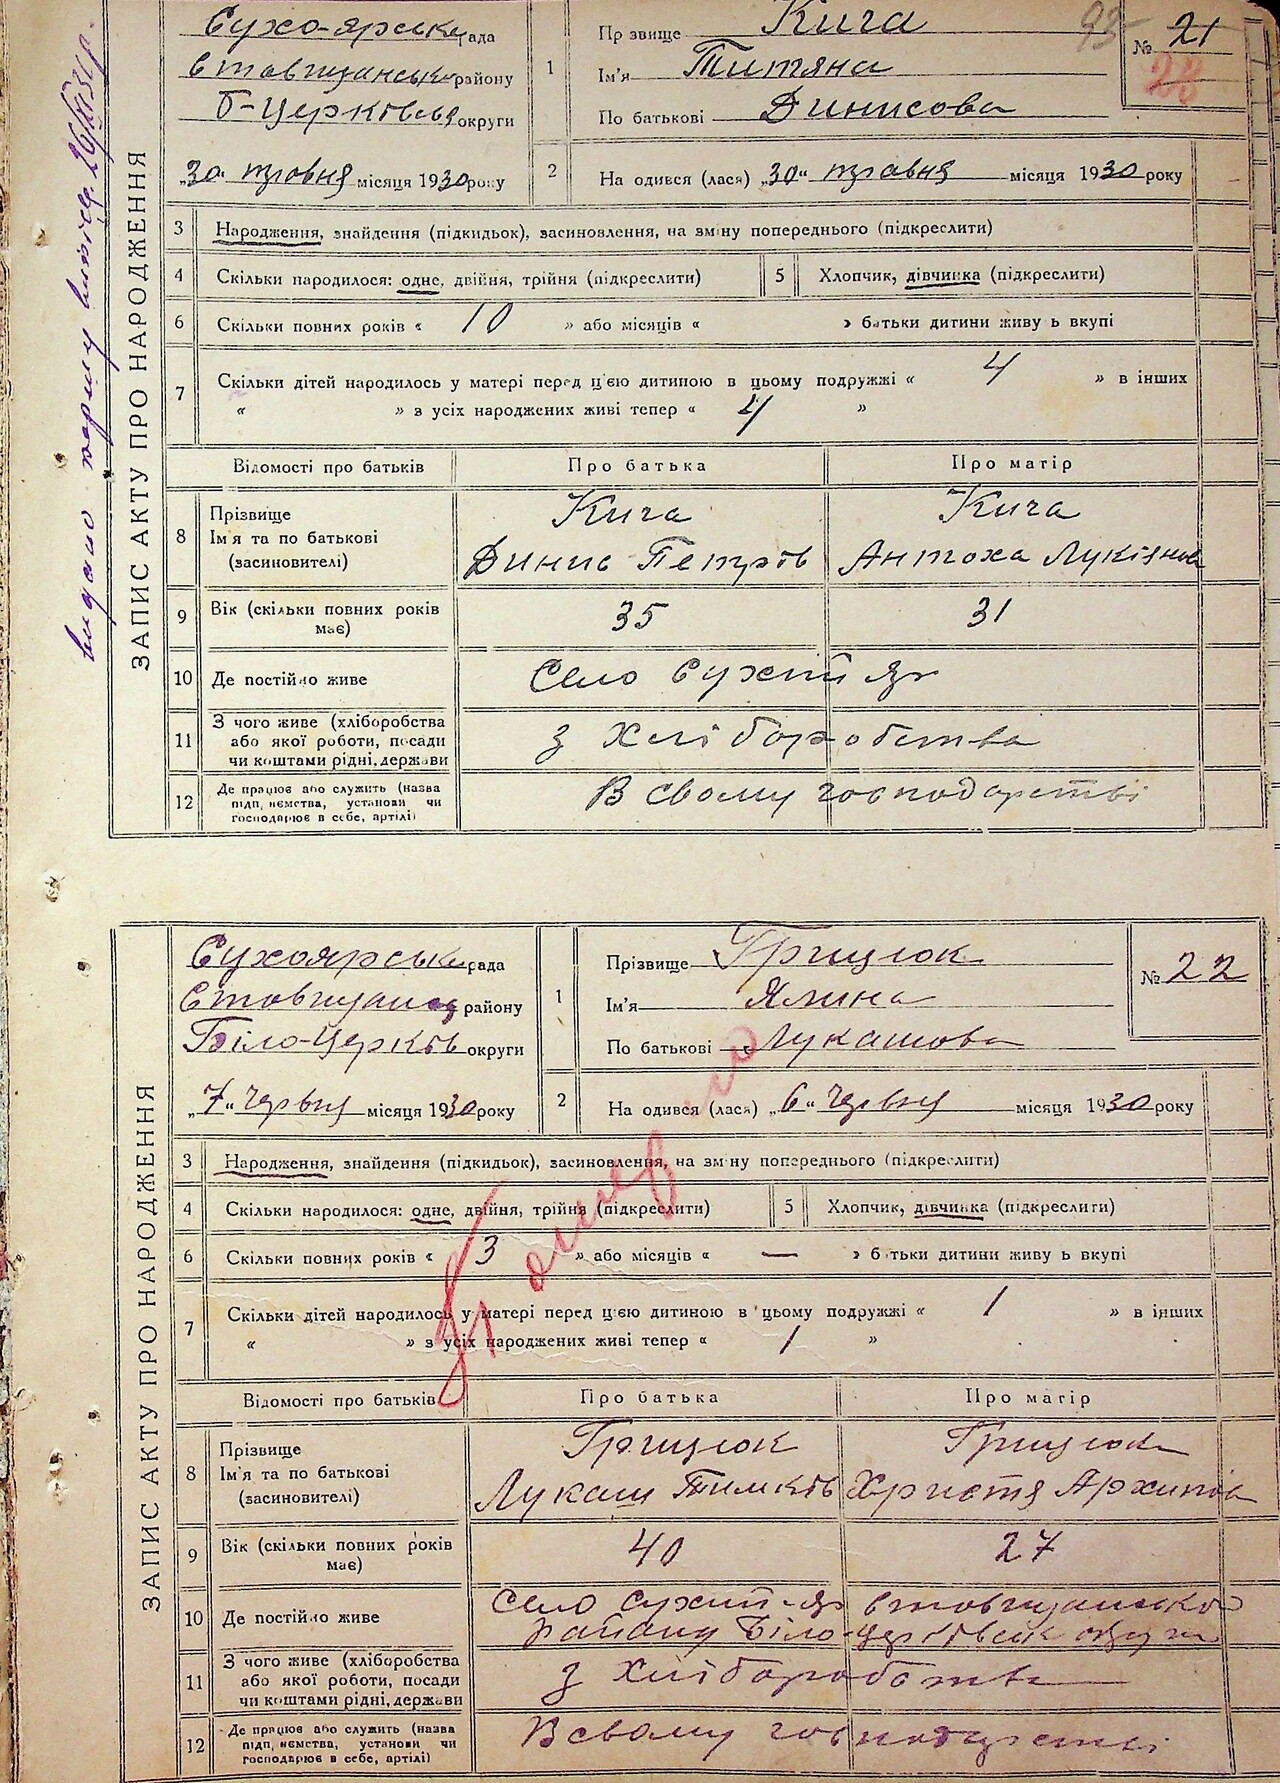 Сухо-ярська рада
Ставищанськ району
Б-Церківськ округи
„30“ травня місяця 1930 року
1
Прізвище Кича
Ім'я Титяна
По батькові Динисова
93
№ 21
28
2
На одився (лася) „30“ травня місяця 1930 року
ЗАПИС АКТУ ПРО НАРОДЖЕННЯ
3 Народження, знайдення (підкидьок), засиновлення, на зміну попереднього (підкреслити)
4 Скільки народилося: одне, двійня, трійня (підкреслити) 5 Хлопчик, дівчинка (підкреслити)
6 Скільки повних років « 10 » або місяців « » батьки дитини живу ь вкупі
7 Скільки дітей народилось у матері перед ц'єю дитиною в цьому подружжі « 4 » в інших
« » з усіх народжених живі тепер « 4 »
Відомості про батьків Про батька Про матір
8 Прізвище Кича Кича
Ім'я та по батькові Динис Петрів Антоха Лукіянова
(засиновителі)
9 Вік (скільки повних років має) 35 31
10 Де постійно живе Село Сухий Яр
11 З чого живе (хліборобства або якої роботи, посади чи коштами рідні, держави з Хліборобства
12 Де працює або служить (назва підп, иємства, установи чи господарює в себе, артілі) В свому господарстві
Сухоярська рада
Ставищан району
Біло-Церків округи
„7“ Червня місяця 1930 року
1
Прізвище Грицюк
Ім'я Ялина
По батькові Лукашова
№ 22
2
На одився (лася) „6“ Червня місяця 1930 року
ЗАПИС АКТУ ПРО НАРОДЖЕННЯ
3 Народження, знайдення (підкидьок), засиновлення, на зміну попереднього (підкреслити)
4 Скільки народилося: одне, двійня, трійня (підкреслити) 5 Хлопчик, дівчинка (підкреслити)
6 Скільки повних років « 3 » або місяців « — » батьки дитини живу ь вкупі
7 Скільки дітей народилось у матері перед ц'єю дитиною в цьому подружжі « 1 » в інших
« » з усіх народжених живі тепер « 1 »
Відомості про батьків Про батька Про матір
8 Прізвище Грицюк Грицюк
Ім'я та по батькові Лукаш Тимків Христя Архипова
(засиновителі)
9 Вік (скільки повних років має) 40 27
10 Де постійно живе Село Сухий-яр Ставищанського
району Біло-Церківськ округи
11 З чого живе (хліборобства або якої роботи, посади чи коштами рідні, держави з Хліборобства
12 Де працює або служить (назва підп, иємства, установи чи господарює в себе, артілі) В свому господарстві